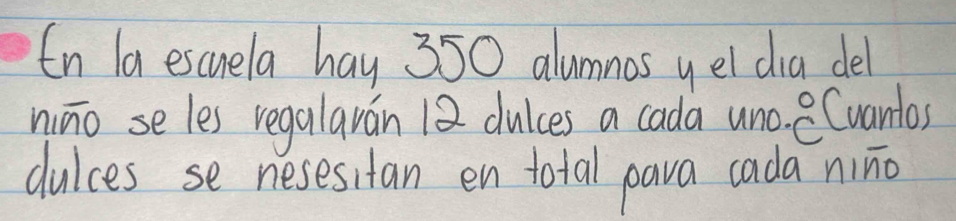 En la escuela hay 350 alumnos y el dia del
niño se les regalarán 12 dulces a cada uno. ¿Cuantos
dulces se nesesitan en total para cada niño